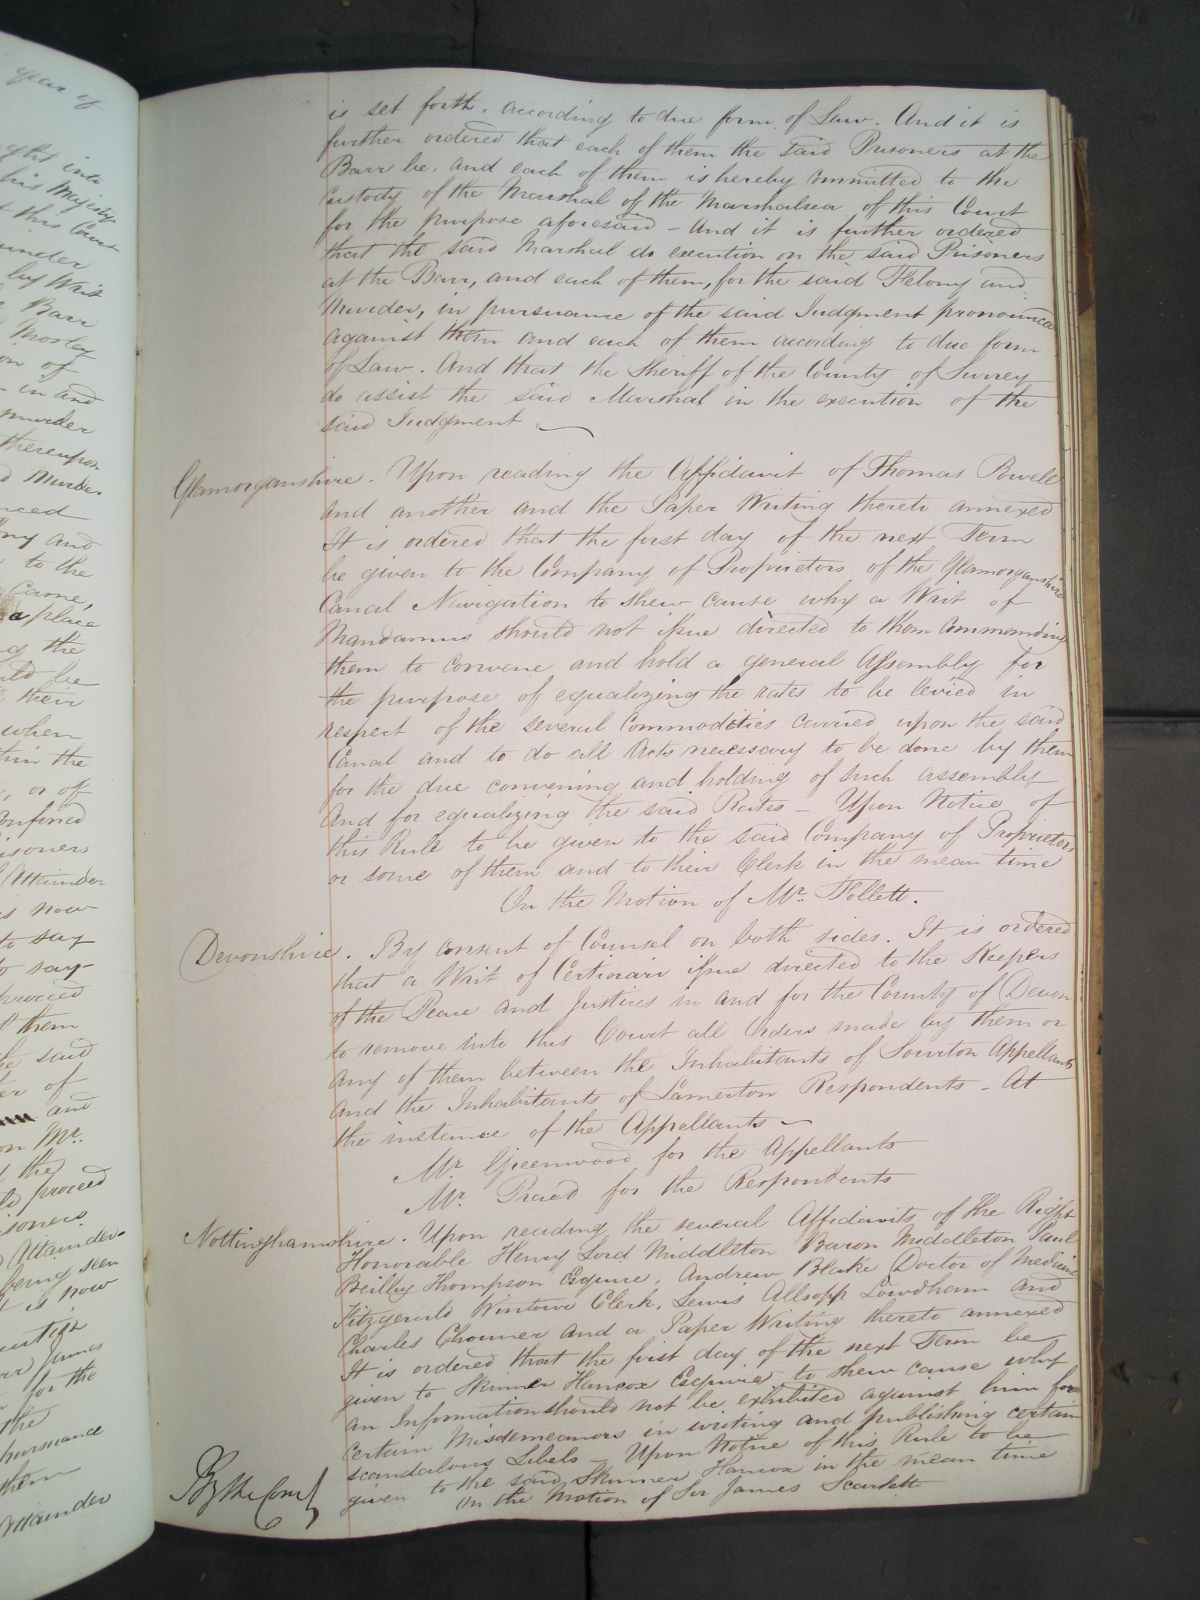 year of
ght into
his Majesty
t this Court
under
by Writ
Barr
Mosley
on of
in and
murder
thereupon
d Murder
nced
ny and
to the
Came,
a place
g the
uld be
their
when
thin the
, or of
onfined
isoners
Attainder
is now
to say
to say
proceed
t them
he said
ter of
and
on Mr.
t the
to proceed
isoners
Attainder
being seen
t is now
James
for the
the
pursuance
them
Attainder
is set forth. according to due form of Law. And it is
further ordered that each of them the said Prisoners at the
Barr be. and each of them is hereby committed to the
Custody of the Marshal of the Marshalsea of this Court
for the purpose aforesaid – And it is further ordered
that the said Marshal do execution on the said Prisoners
at the Barr, and each of them, for the said Felony and
Murder, in pursuance of the said Judgment pronounced
against them and each of them according to due form
of Law. And that the Sheriff of the County of Surrey
do assist the said Marshal in the execution of the
said Judgment
Glamorganshire. Upon reading the Affidavit of Thomas Powell
and another and the Paper Writing thereto annexed
It is ordered that the first day of the next Term
be given to the Company of Proprietors of the Glamorganshire
Canal Navigation to shew cause why a Writ of
Mandamus should not issue directed to them Commanding
them to convene and hold a general Assembly for
the purpose of equalizing the rates to be levied in
respect of the several Commodities carried upon the said
Canal and to do all Acts necessary to be done by them
for the due convening and holding of such assembly
And for equalizing the said Rates – Upon Notice of
this Rule to be given to the said Company of Proprietors
or some of them and to their Clerk in the mean time
On the Motion of Mr. Follett.
Devonshire. By consent of Counsel on both sides. It is ordered
that a Writ of Certiorari issue directed to the Keepers
of the Peace and Justices in and for the County of Devon
to remove into this Court all Orders made by them or
any of them between the Inhabitants of Sourton Appellants
and the Inhabitants of Lamerton Respondents – At
the instance of the Appellants –
Mr. Greenwood for the Appellants
Mr. Praed for the Respondents
Nottinghamshire. Upon reading the several Affidavits of the Right
Honorable Henry Lord Middleton Baron Middleton Paul
Beilby Thompson Esquire, Andrew Blake Doctor of Medicine
Fitzgerald Wintour Clerk, Lewis Allsopp Lowdham and
Charles Chouner and a Paper Writing thereto annexed
It is ordered that the first day of the next Term be
given to Skinner Hancox Esquire to shew cause why
an Information should not be exhibited against him for
certain Misdemeanors in writing and publishing certain
scandalous Libels – Upon Notice of this Rule to be
given to the said Skinner Hancox in the mean time
On the Motion of Sir James Scarlett
By the Court